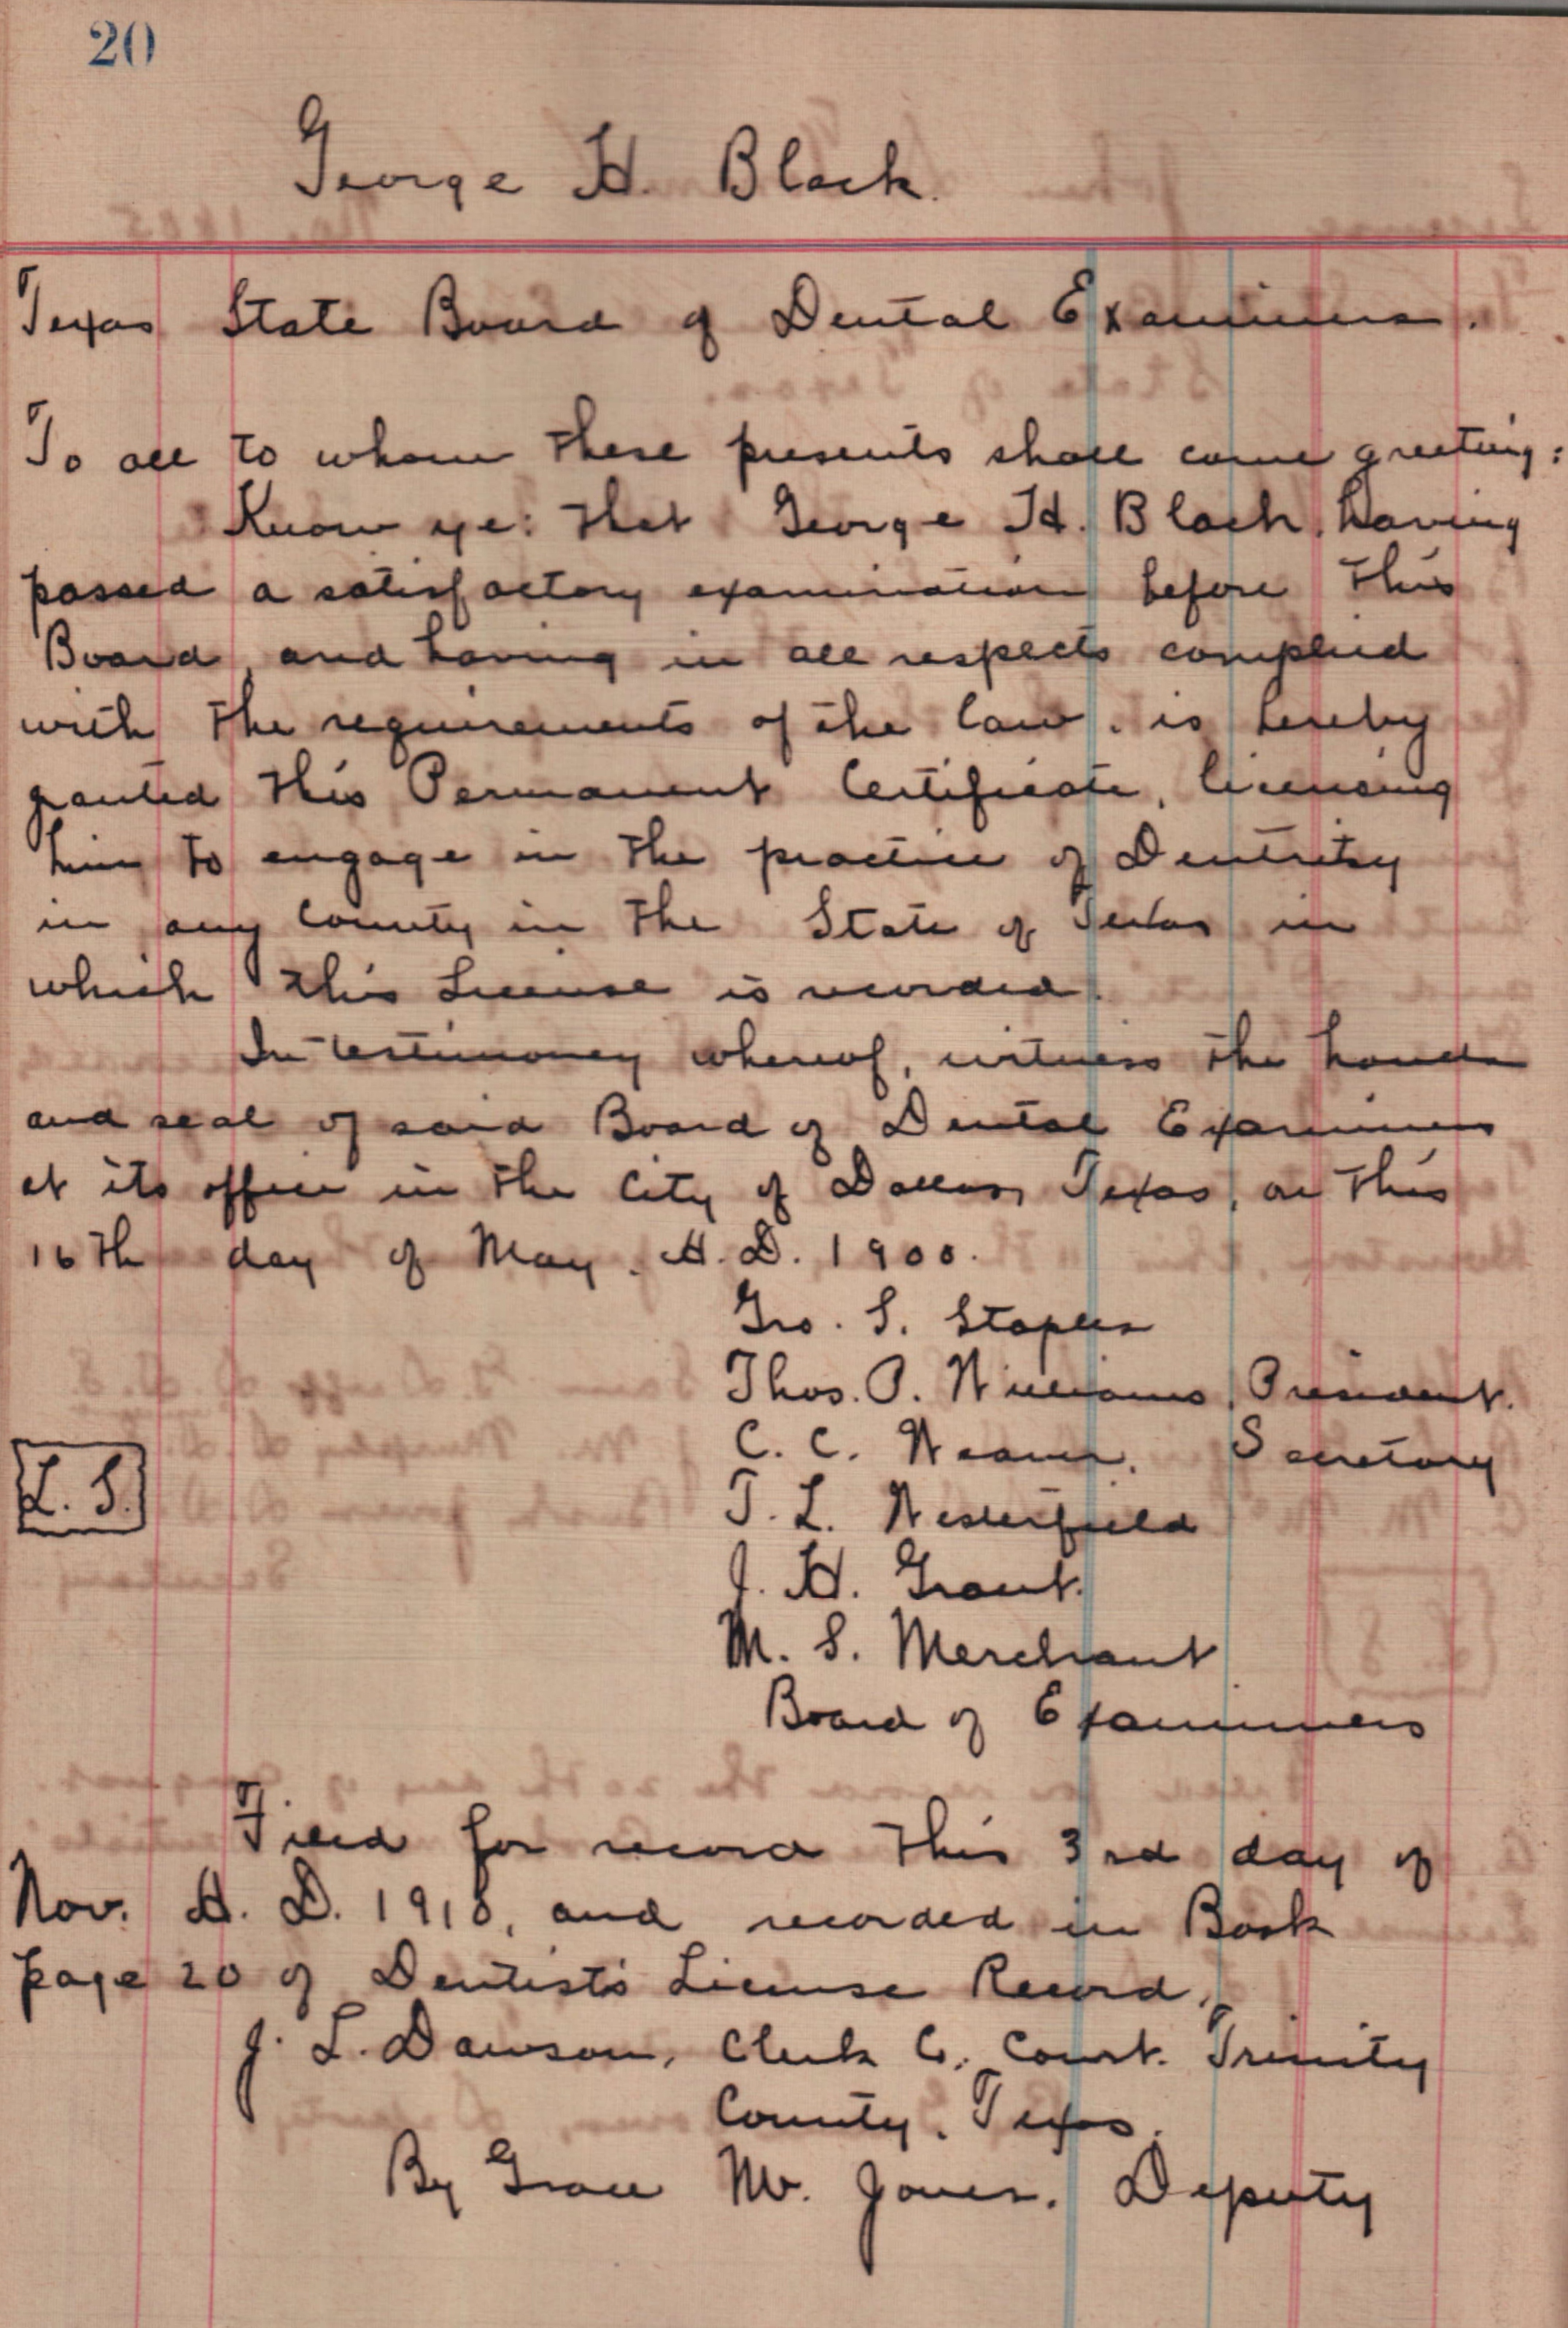 20
George H. Black.
Texas State Board of Dental Examiners.
To all to whom these presents shall come greeting:
Know ye: that George H. Black, having
passed a satisfactory examination before this
Board, and having in all respects complied
with the requirements of the law, is hereby
granted this Permanent Certificate, licensing
him to engage in the practice of Dentistry
in any County in the State of Texas in
which this License is recorded.
In testimoney whereof, witness the hands
and seal of said Board of Dental Examiners
at its office in the City of Dallas, Texas, on this
16th day of May. A.D. 1900.
Geo. S. Staples
Thos. P. Williams, President.
C. C. Weaver. Secretary
L. S.
T. L. Westerfield
J. H. Grant.
M. S. Merchant
Board of Examiners
Filed for record this 3rd day of
Nov. A. D. 1910, and recorded in Book
page 20 of Dentist's License Record.
J. L. Dawson, Clerk Co. Court. Trinity
County, Texas.
By Grace M. Jones. Deputy